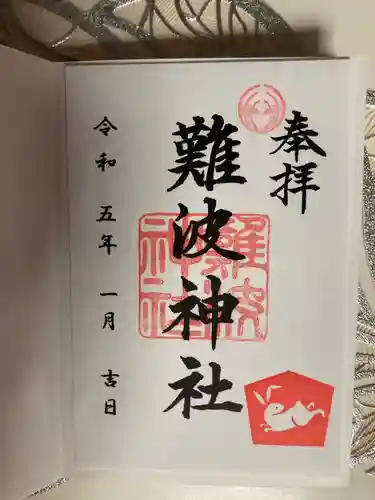 奉拝
難波神社
難波
神社
令和五年一月吉日